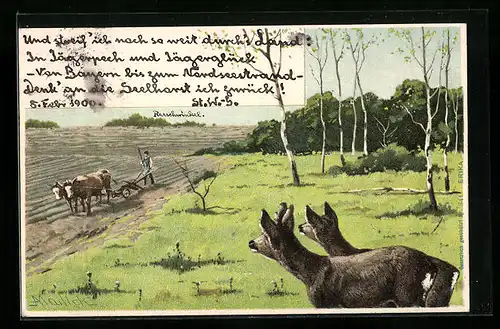 Und streif' ich noch so weit durch's Land:
In Jägerpech und Jägerglück
- Von Bayern bis zum Nordseestrand -
Denk' an die Seelhardt ich zurück!
8. Febr 1900. St. W-G.
ERIKA